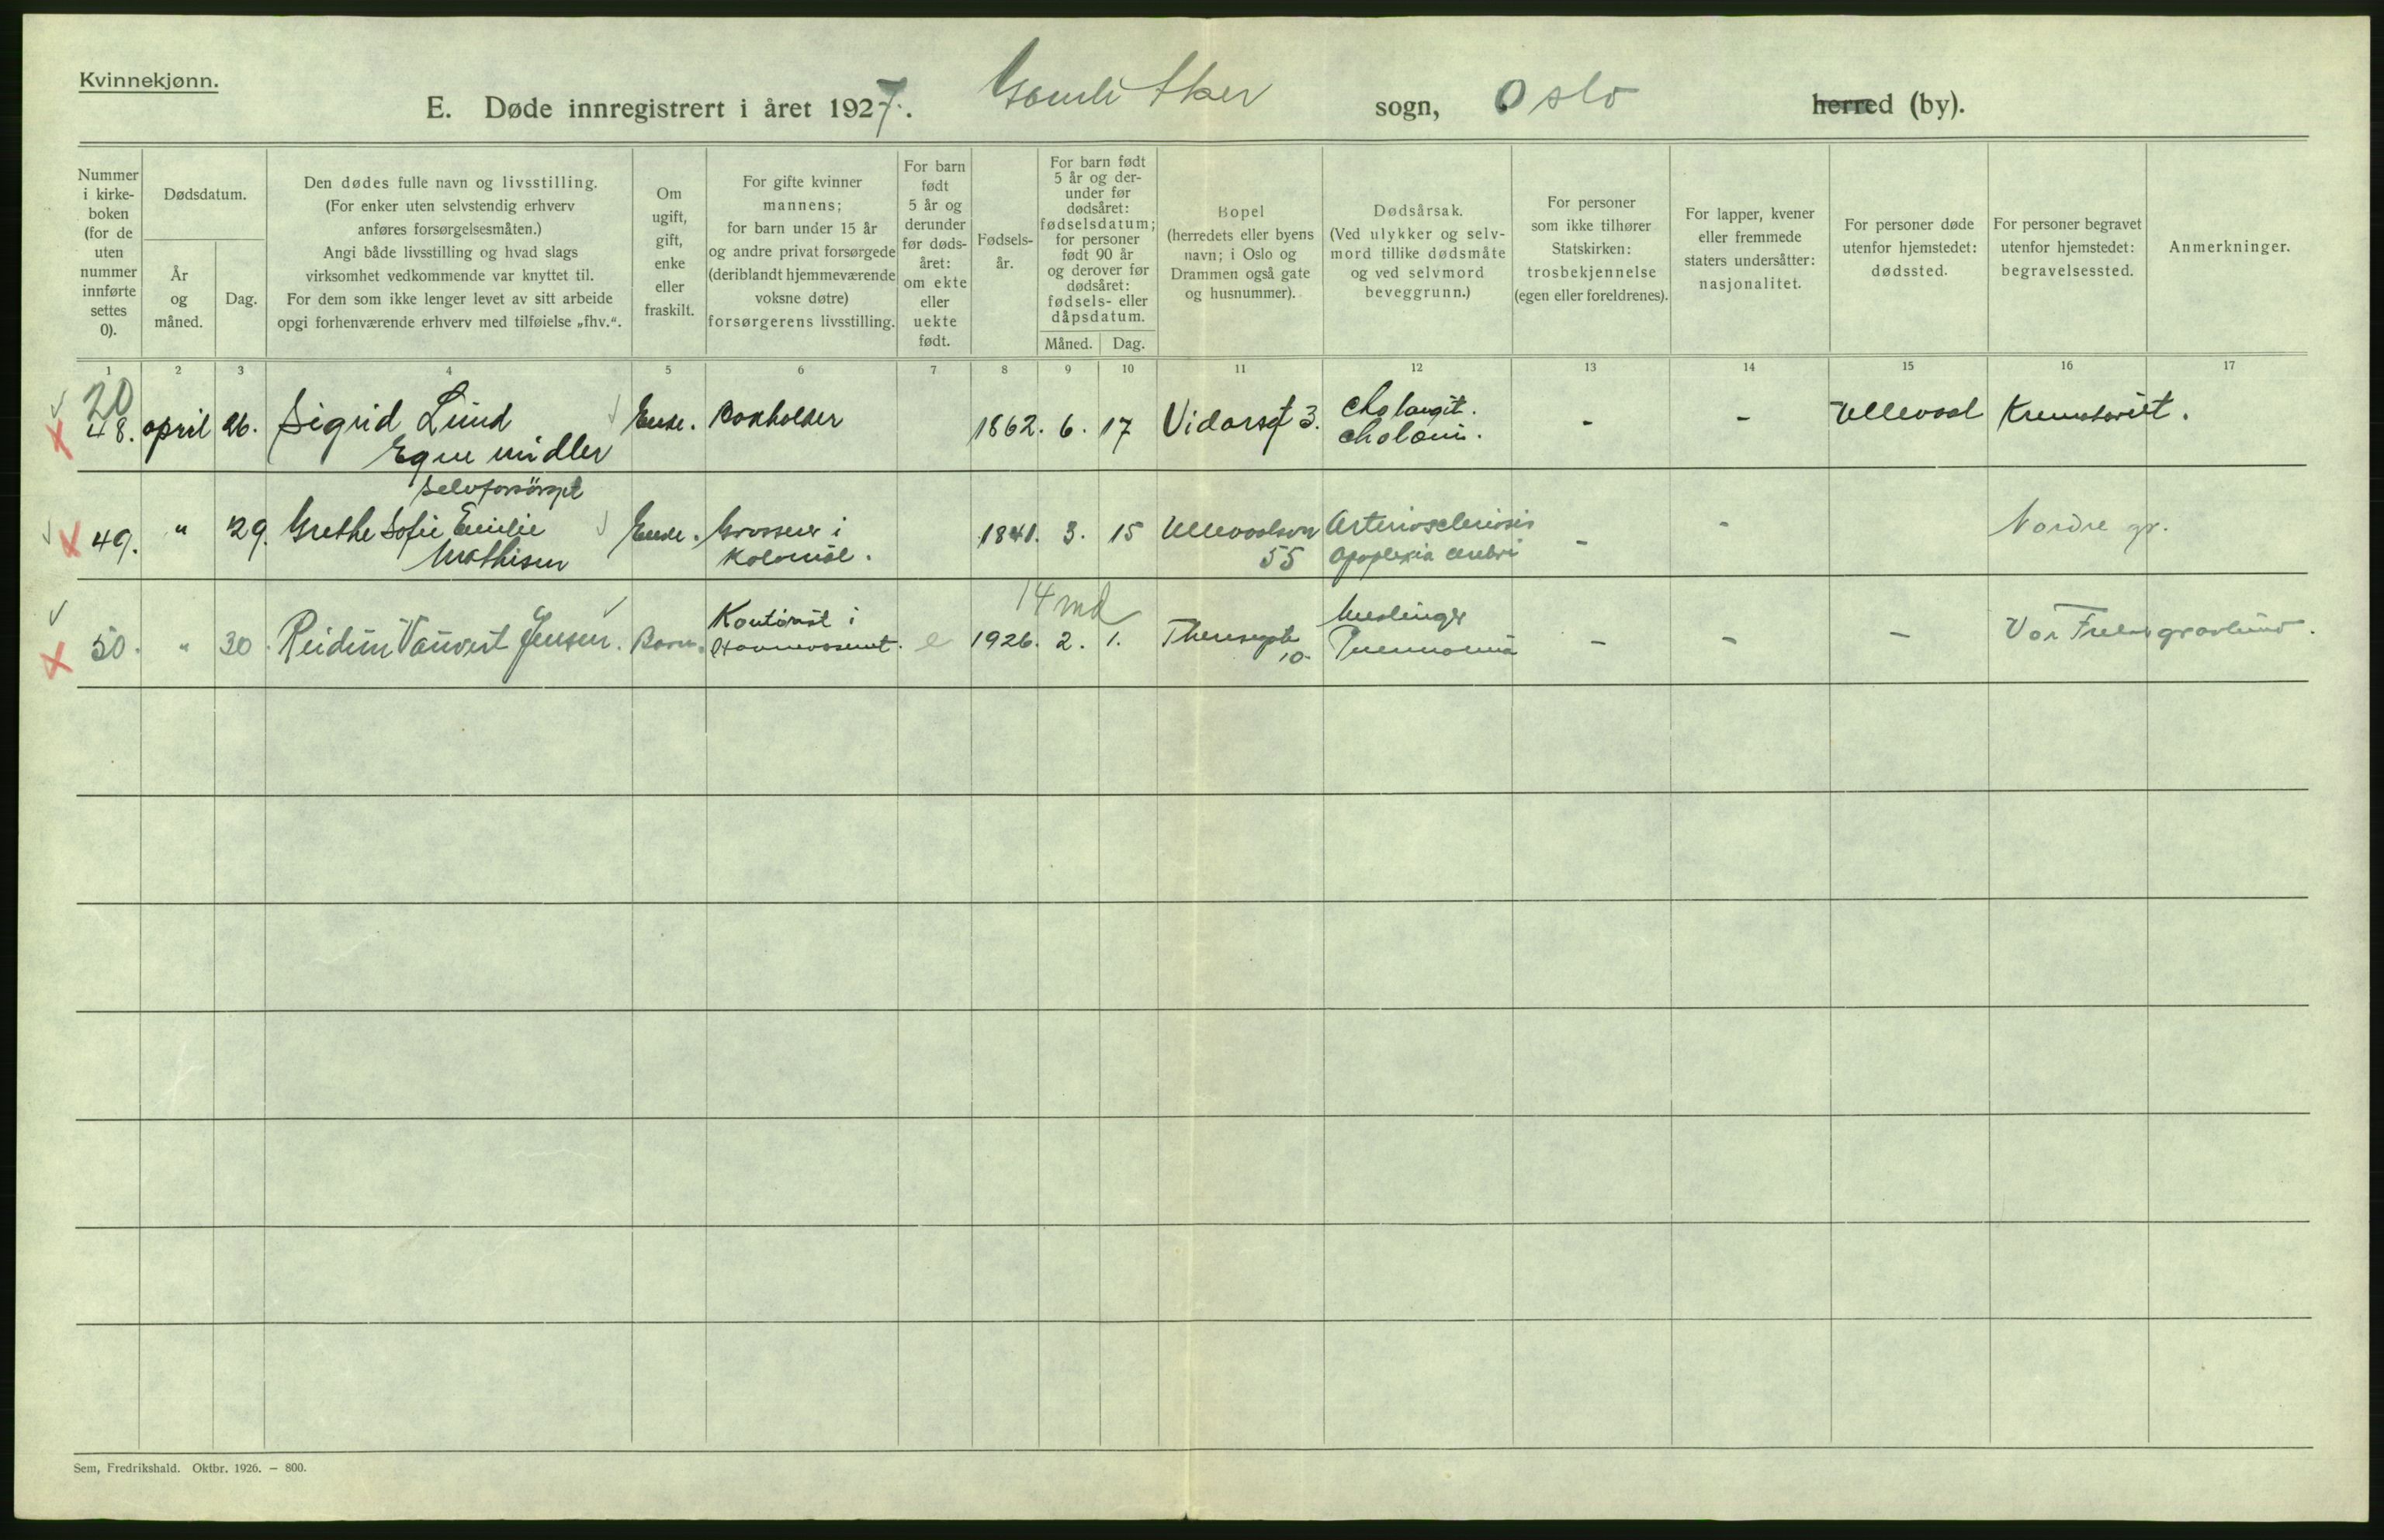 Kvinnekjønn.
E. Døde innregistrert i året 1927. Gamle Aker sogn, Oslo herred (by).
Nummer
i kirke-
boken
(for de
uten
nummer
innførte
settes
0).
Dødsdatum.
År
og
måned.
Dag.
Den dødes fulle navn og livsstilling.
(For enker uten selvstendig erhverv
anføres forsørgelsesmåten.)
Angi både livsstilling og hvad slags
virksomhet vedkommende var knyttet til.
For dem som ikke lenger levet av sitt arbeide
opgi forhenværende erhverv med tilføielse „fhv.“.
Om
ugift,
gift,
enke
eller
fraskilt.
For gifte kvinner
mannens;
for barn under 15 år
og andre privat forsørgede
(deriblandt hjemmeværende
voksne døtre)
forsørgerens livsstilling.
For barn
født
5 år og
derunder
før døds-
året:
om ekte
eller
uekte
født.
Fødsels-
år.
For barn født
5 år og der-
under før
dødsåret:
fødselsdatum;
for personer
født 90 år
og derover før
dødsåret:
fødsels- eller
dåpsdatum.
Måned. Dag.
Bopel
(herredets eller byens
navn; i Oslo og
Drammen også gate
og husnummer).
Dødsårsak.
(Ved ulykker og selv-
mord tillike dødsmåte
og ved selvmord
beveggrunn.)
For personer
som ikke tilhører
Statskirken:
trosbekjennelse
(egen eller foreldrenes).
For lapper, kvener
eller fremmede
staters undersåtter:
nasjonalitet.
For personer døde
utenfor hjemstedet:
dødssted.
For personer begravet
utenfor hjemstedet:
begravelsessted.
Anmerkninger.
1 2 3 4 5 6 7 8 9 10 11 12 13 14 15 16 17
20
48. april 26. Sigrid Lund Enke. 1862. 6. 17 Vidarsgt 3. Cholangit. - - Ullevaal Krematoriet.
Egne midler
selvforsørget
49. " 29. Grethe Sofie Emilie Enke. Grosserer i 1841. 3. 15 Ullevaalsvn Arteriosclerosis - - Nordre gr.
Mathisen Kolonial. 55 Apoplexia cerebri
14 md
50. " 30. Reidun Jensen. Barn. Kontorist i e 1926. 2. 1. Theresegate Meslinger - - - Vor Frelsers gravlund.
Havnevesenet. 10. Pneumonia
Sem, Fredrikshald. Oktbr. 1926. — 800.